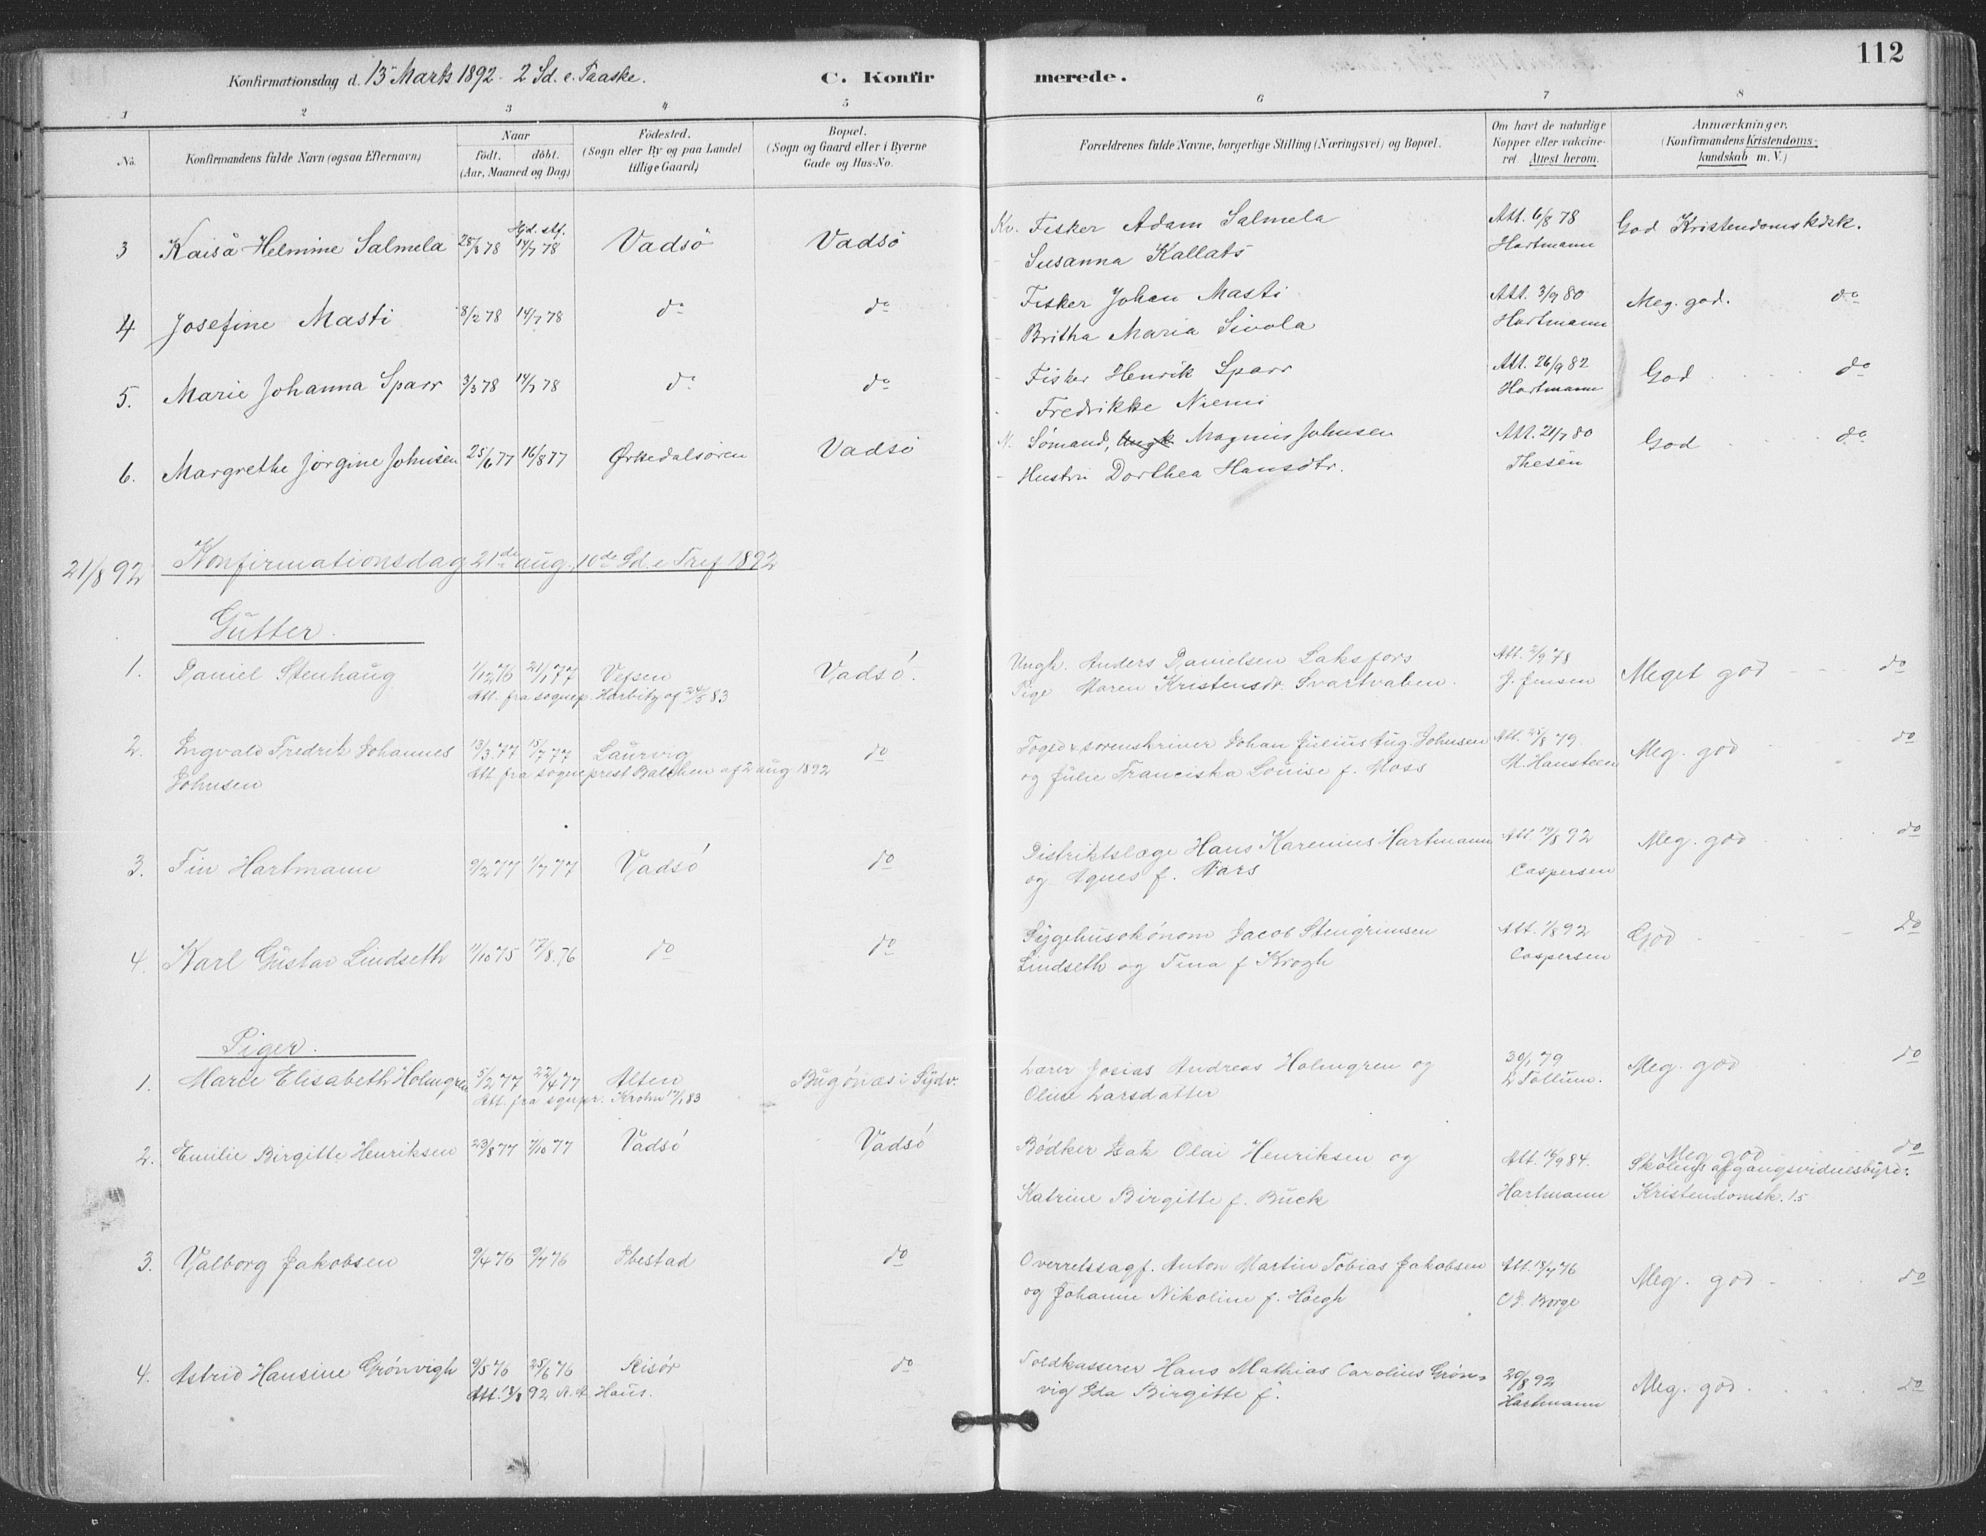 112
Konfirmationsdag d. 13 Marts 1892 - 2 Sd. e. Faaske.
C. Konfir merede.
1 2 3 4 5 6 7 8
No. Konfirmandens fulde Navn (ogsaa Efternavn)
Naar født. døbt. (Aar, Maaned og Dag)
Födested. (Sogn eller By og paa Landet tillige Gaard)
Bopæl. (Sogn og Gaard eller i Byerne Gade og Hus-No.
Forældrenes fulde Navne, borgerlige Stilling (Næringsvei) og Bopæl.
Om havt de naturlige Kopper eller vakcineret Attest herom.
Anmærkninger, (Konfirmandens Kristendomskundskab m. V.)
Hjd. dbt.
3 Kaisa Helmine Salmela 28/3 78 14/7 78 Vadsö Vadsö Kv. Fisker Adam Salmela Att. 6/8 78 God Kristendomskdsk.
Susanna Kallats Hartmann
4 Josefine Masti 8/2 78 14/7 78 do do Fisker Johan Masti Att. 3/9 80 Meg. god. do
Britha Maria Sivola Hartmann
5. Marie Johanna Sparr 3/3 78 14/7 78 do do Fisker Henrik Sparr Att. 26/9 82 God do
Fredrikke Niemi Hartmann
6. Margrethe Jörgine Johnsen 25/6 77 16/8 77 Örkedalsören Vadsö N. Sömand, Ungk. Magnus Johnsen Att. 21/7 80 God do
Hustru Dorthea Hansdtr. Thesen
21/8 92 Konfirmationsdag 21de aug. 10de Sd. e Tref 1892
Gutter.
1. Daniel Stenhaug 1/12 76 21/1 77 Vefsen Vadsö. Ungk. Anders Danielsen Laksfors Att. 2/9 78 Meget god do
Att. fra sognep. Harbitz af 24/5 83 Pige Maren Kristensdr. Svartvaben. J. Jensen
2. Ingvald Fredrik Johannes 13/3 77 15/7 77 Laurvig do Foged & sorenskriver Johan Julius Aug. Johnsen Att. 25/8 79. Meg. god do
Johnsen Att. fra sogneprest Balchen af 2 aug 1892 og Julie Franciska Louise f. Moss M. Hansteen
3. Fin Hartmann 9/2 77 1/7 77 Vadsö do Distriktslæge Hans Karenius Hartmann Att. 19/8 92 Meg. god do
og Agnes f. Aars Caspersen
4. Karl Gustav Lindseth 11/10 75 17/8 76 do do Sygehusökonom Jacob Stengrimsen Att. 1/8 92 God do
Lindseth og Tina f Krogh Caspersen
Piger.
1. Marie Elisabeth Holmgren 5/2 77 22/4 77 Alten Bugönæs i Sydv. Lærer Josias Andreas Holmgren og 30/1 79 Meg. god do
Att. fra sgnepr. Krohn 12/1 83 Oline Larsdatter L Tollum.
2. Emilie Birgitte Henriksen 23/8 77 7/10 77 Vadsö Vadsö Bödker Isak Olai Henriksen og Att. 16/9 84. Meg god do
Skolens afgangsvidnesbyrd:
Katrine Birgitte f. Buck Hartmann Kristendomsk. 1.5
3. Valborg Jakobsen 9/4 76 9/7 76 Ibestad do Overretssagf. Anton Martin Tobias Jakobsen Att. 18/7 76 Meg. god do
og Johanne Nikoline f. Höegh Borge
4. Astrid Hansine Grönvigh 9/5 76 25/6 76 Risör do Toldkasserer Hans Mathias Carolius Grön- 20/8 92 Meg. god do
Att. 13/8 92 A. A. Haus. vig Ida Birgitte f. Hartmann